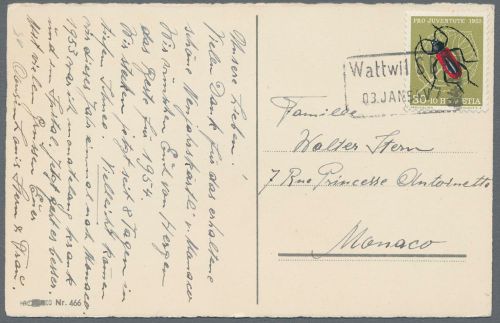 Unsere Lieben!
Vielen Dank für das erhaltene
schöne Neujahrskartli v. Monaco
Wir wünschen Euch von Herzen
das Beste für 1954
Wir stecken jetzt seit 8 Tagen in
tiefem Schnee. Vielleicht komen
wir dieses Jahr einmal nach Monaco.
1953 war ich monatelang krank
und im Spital. Jetzt geht es besser.
Mit vielen Grüssen Euer
Louis Stern & Frau.
Nr. 466
PRO JUVENTUTE 1953
30+10 HELVETIA
Wattwil
03.JAN.54
Familie
Walter Stern
7 Rue Princesse Antoinette
Monaco